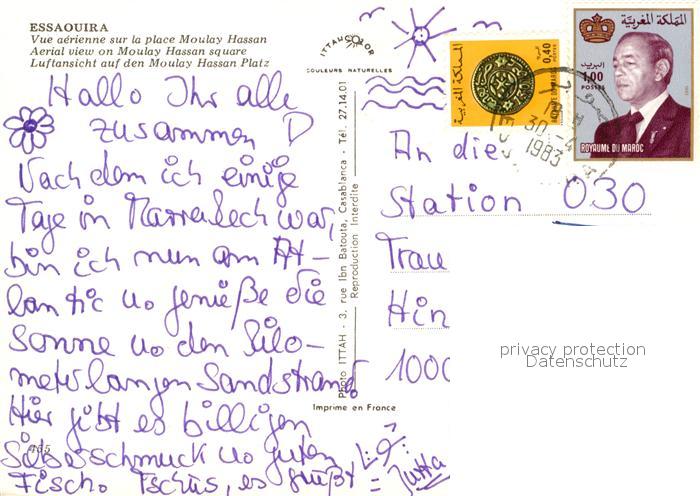 ESSAOUIRA
Vue aérienne sur la place Moulay Hassan
Aerial view on Moulay Hassan square
Luftansicht auf den Moulay Hassan Platz
Hallo Ihr alle
zusammen
Nachdem ich einige
Tage in Marrakech war,
bin ich nun am At-
lantic uo genieße die
Sonne uo den kilo-
meterlangen Sandstrand
Hier gibt es billigen
Silberschmuck uo guten
Fisch. Tschüs, es grüßt
Jutta
455
ITTAHCOLOR
COULEURS NATURELLES
Photo ITTAH - 3, rue Ibn Batouta, Casablanca - Tél. 27.14.01
Reproduction Interdite
Imprime en France
المملكة المغربية
0,40
POSTES
المملكة المغربية
البريد
1,00
POSTES
ROYAUME DU MAROC
30-4
1983
An die
Station 030
Trau
Hin
1000
privacy protection
Datenschutz